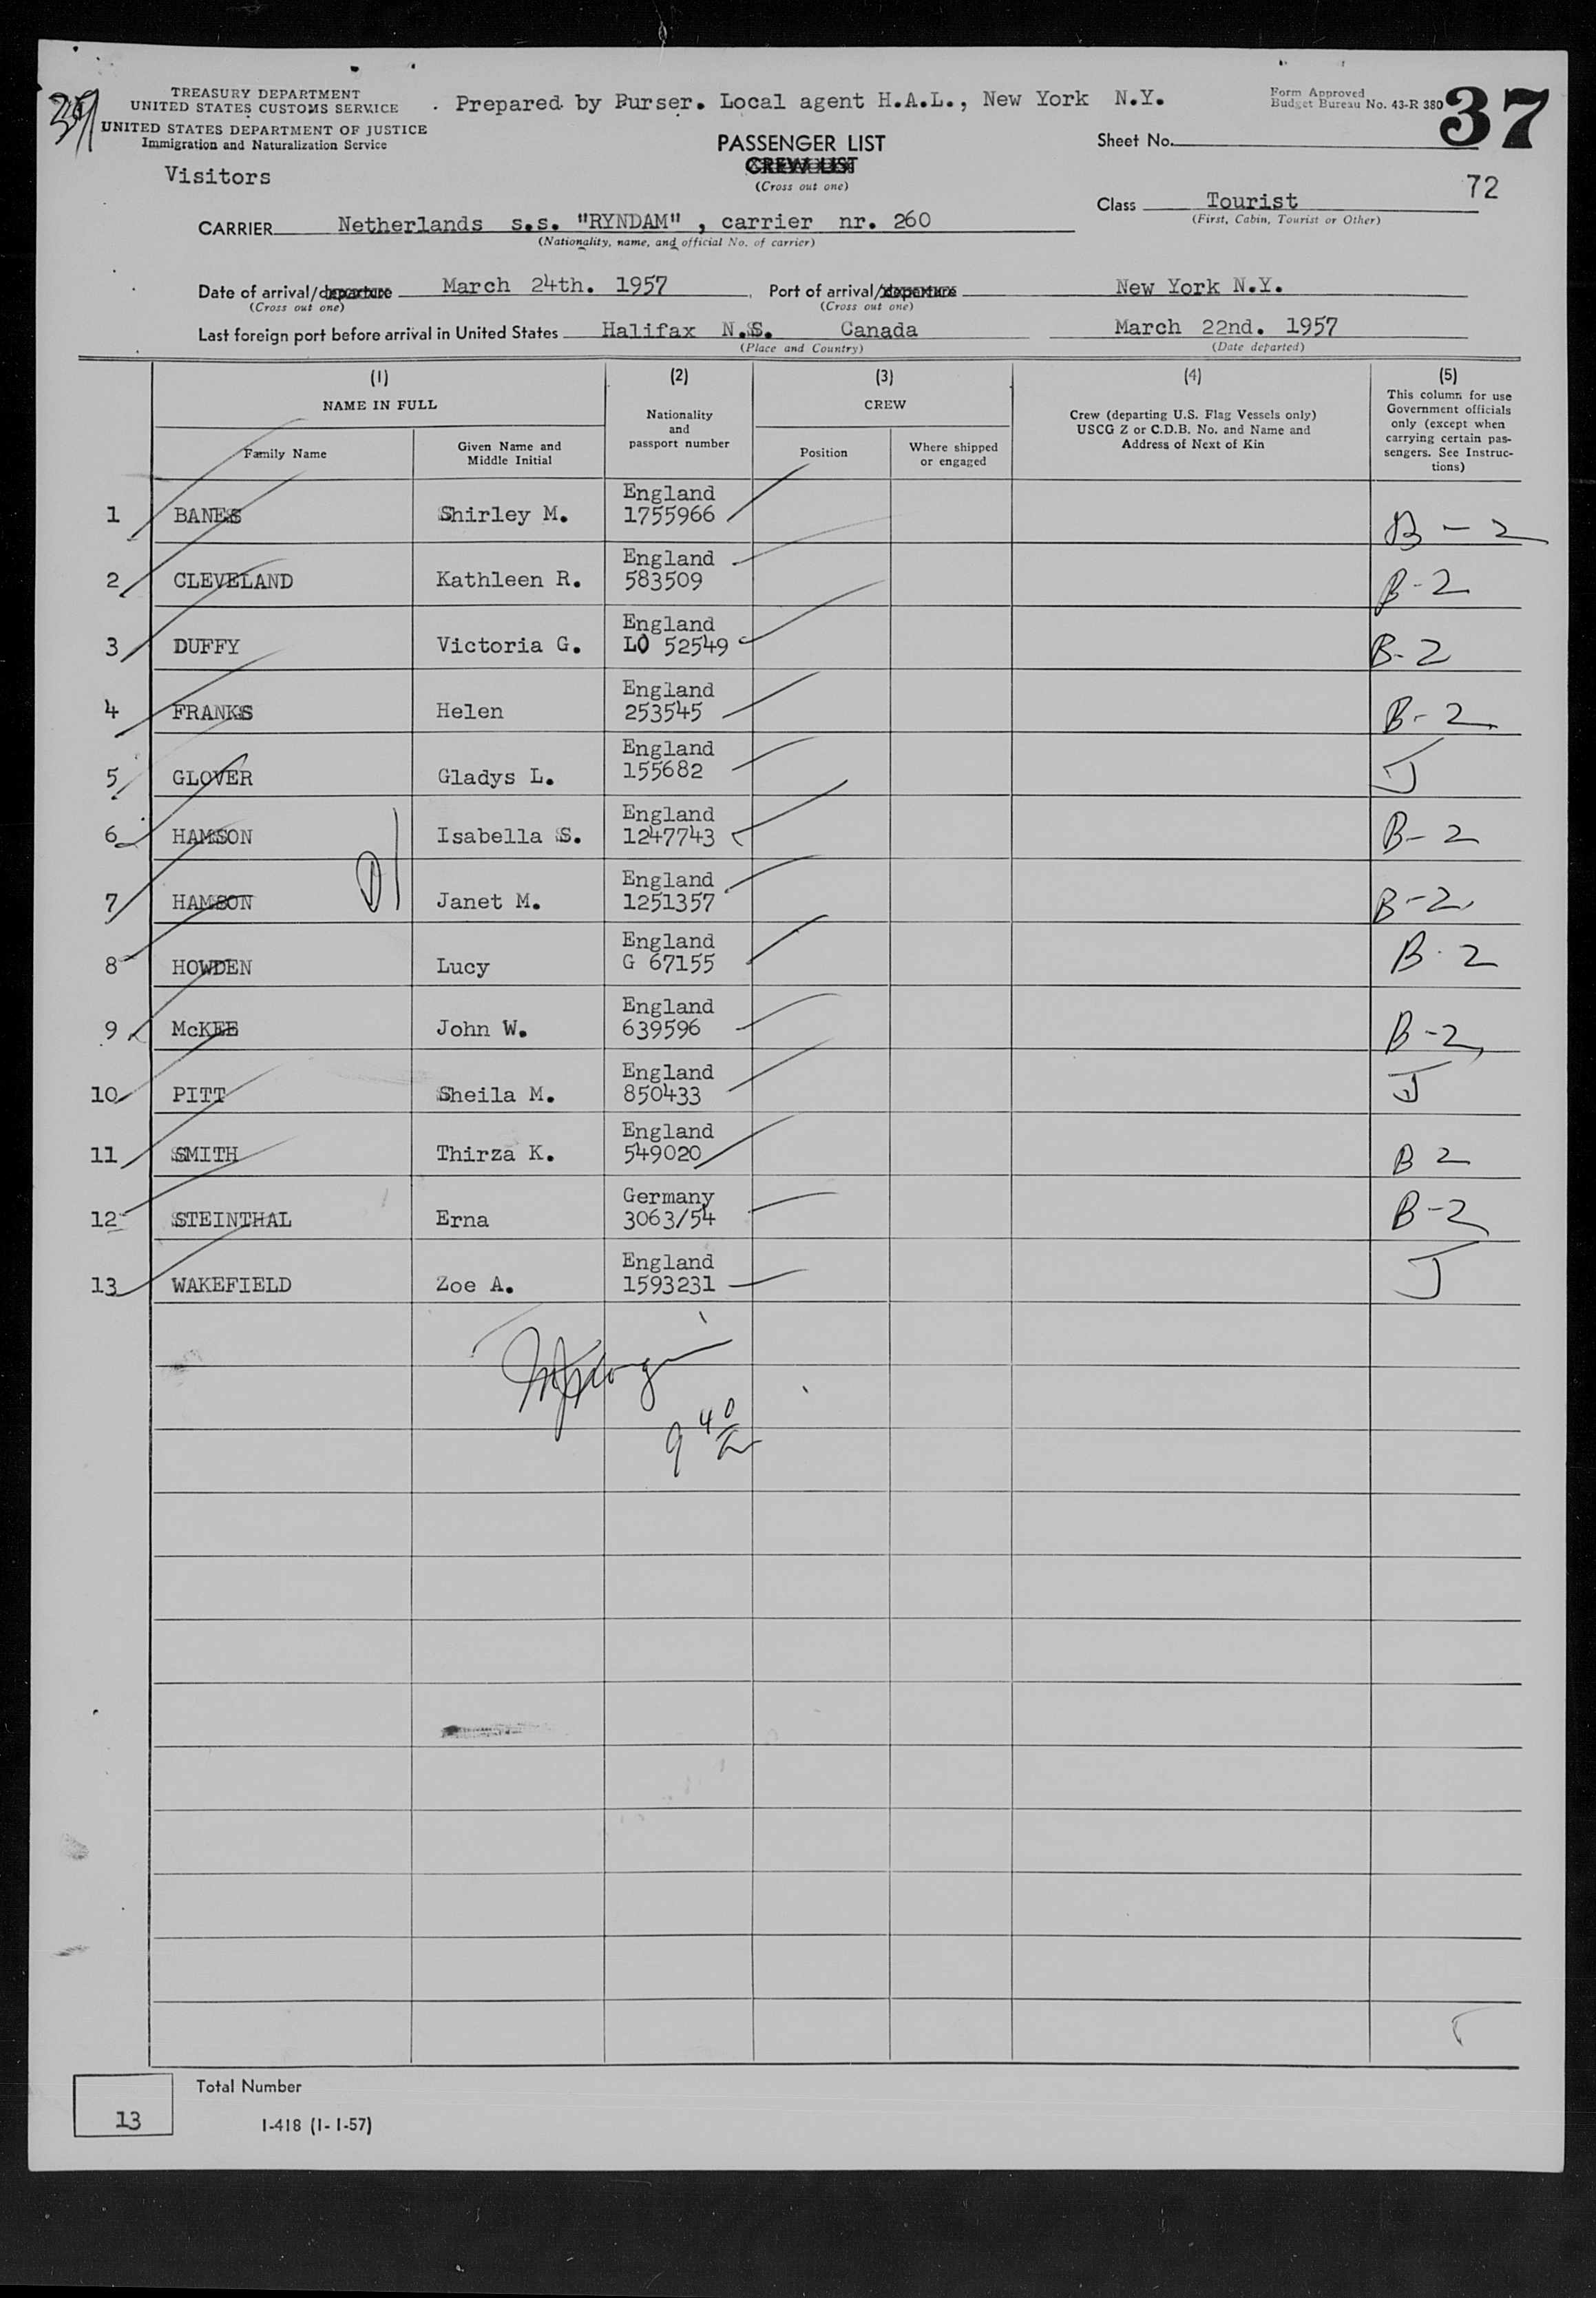 TREASURY DEPARTMENT
UNITED STATES CUSTOMS SERVICE
UNITED STATES DEPARTMENT OF JUSTICE
Immigration and Naturalization Service
Visitors
. Prepared by Purser. Local agent H.A.L., New York N.Y.
PASSENGER LIST
CREW LIST
(Cross out one)
Form Approved
Budget Bureau No. 43-R 380
37
Sheet No.
72
Class Tourist
(First, Cabin, Tourist or Other)
CARRIER Netherlands s.s. "RYNDAM" , carrier nr. 260
(Nationality, name, and official No. of carrier)
Date of arrival/departure March 24th. 1957 Port of arrival/departure New York N.Y.
(Cross out one) (Cross out one)
Last foreign port before arrival in United States Halifax N.S. Canada March 22nd. 1957
(Place and Country) (Date departed)
(1) (2) (3) (4) (5)
NAME IN FULL
Family Name
Given Name and
Middle Initial
Nationality
and
passport number
CREW
Position
Where shipped
or engaged
Crew (departing U.S. Flag Vessels only)
USCG Z or C.D.B. No. and Name and
Address of Next of Kin
This column for use
Government officials
only (except when
carrying certain pas-
sengers. See Instruc-
tions)
1 BANES Shirley M. England 1755966 B-2
2 CLEVELAND Kathleen R. England 583509 B-2
3 DUFFY Victoria G. England LO 52549 B-2
4 FRANKS Helen England 253545 B-2
5 GLOVER Gladys L. England 155682 J
6 HAMSON Isabella S. England 1247743 B-2
7 HAMSON Janet M. England 1251357 B-2
8 HOWDEN Lucy England G 67155 B-2
9 McKEE John W. England 639596 B-2
10 PITT Sheila M. England 850433 J
11 SMITH Thirza K. England 549020 B 2
12 STEINTHAL Erna Germany 3063/54 B-2
13 WAKEFIELD Zoe A. England 1593231 J
9 40
13
Total Number
I-418 (1-1-57)